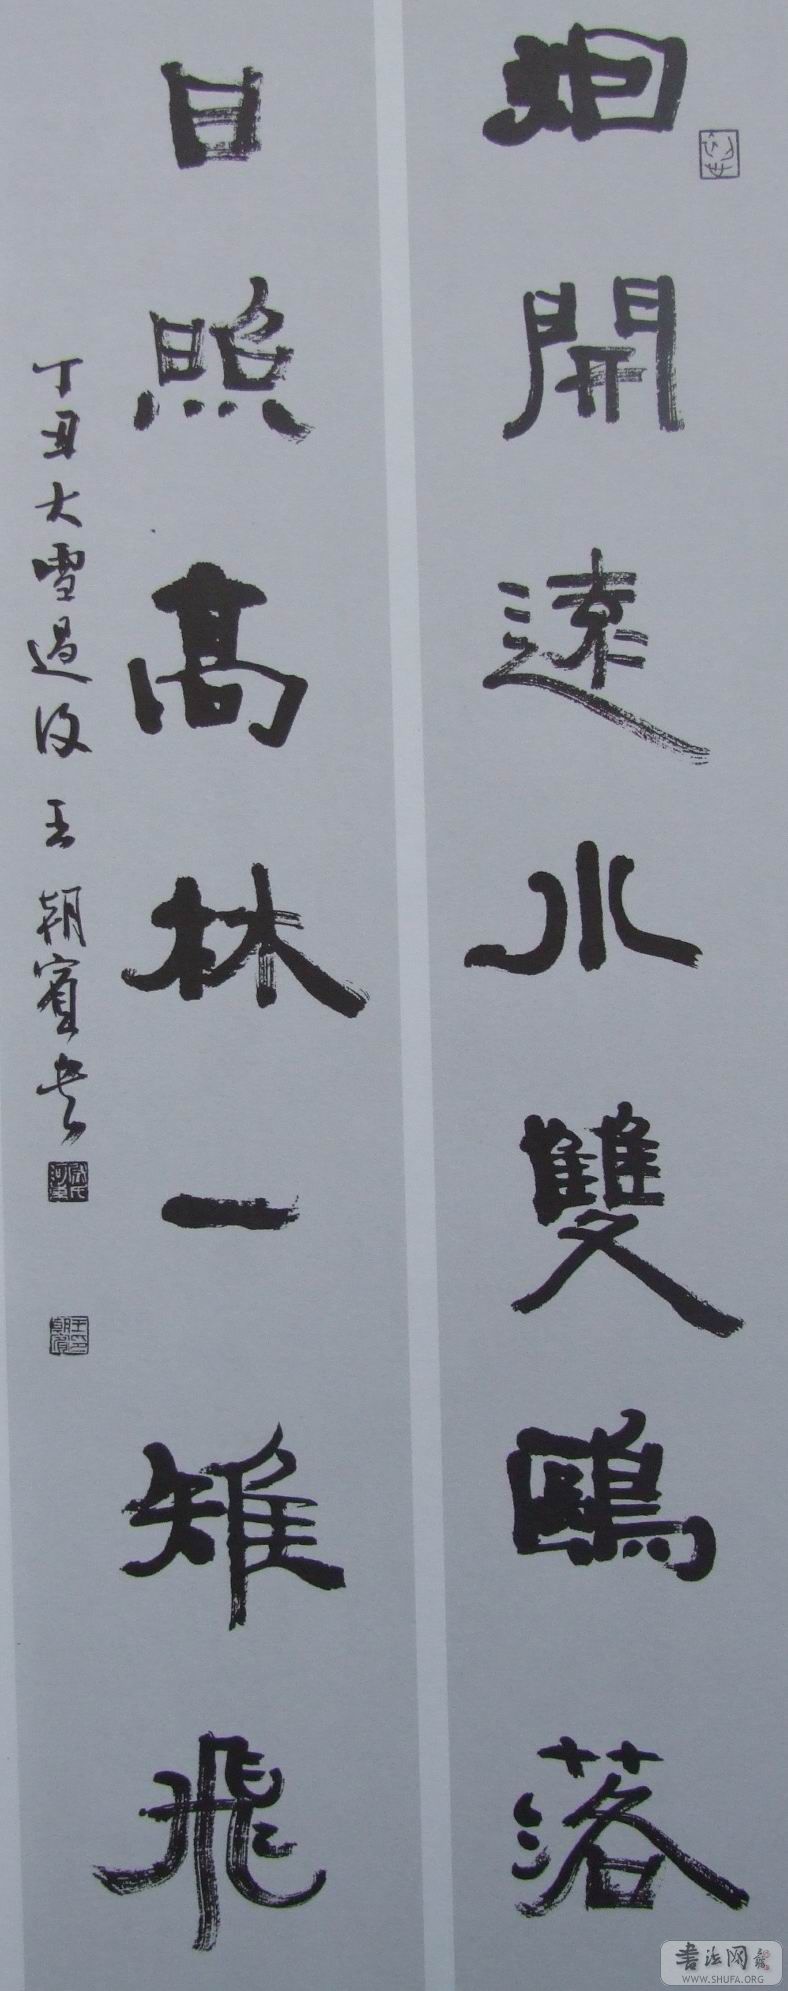 烟開遠水雙鷗落
日照高林一雉飛
丁丑大雪過後 王朝賓書
王朝賓印
書法网
WWW.SHUFA.ORG